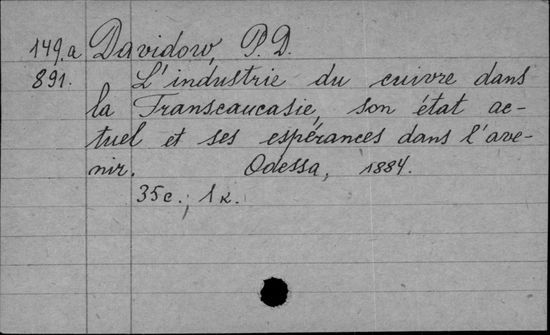 149.a Davidow, P. D.
891. L'industrie du cuivre dans
la Transcaucasie, son état ac-
tuel et ses espérances dans l'ave-
nir. Odessa, 1884.
35c.; 1 к.